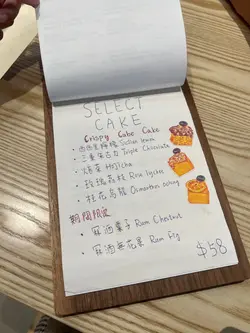 SELECT
CAKE
Crispy Cube Cake
• 西西里檸檬 Sicilian lemon
• 三重朱古力 Triple Chocolate
• 焙茶 Hojicha
• 玫瑰荔枝 Rose lychee
• 桂花烏龍 Osmanthus oolong
期間限定
• 麻酒栗子 Rum Chestnut
• 麻酒無花果 Rum Fig
$58